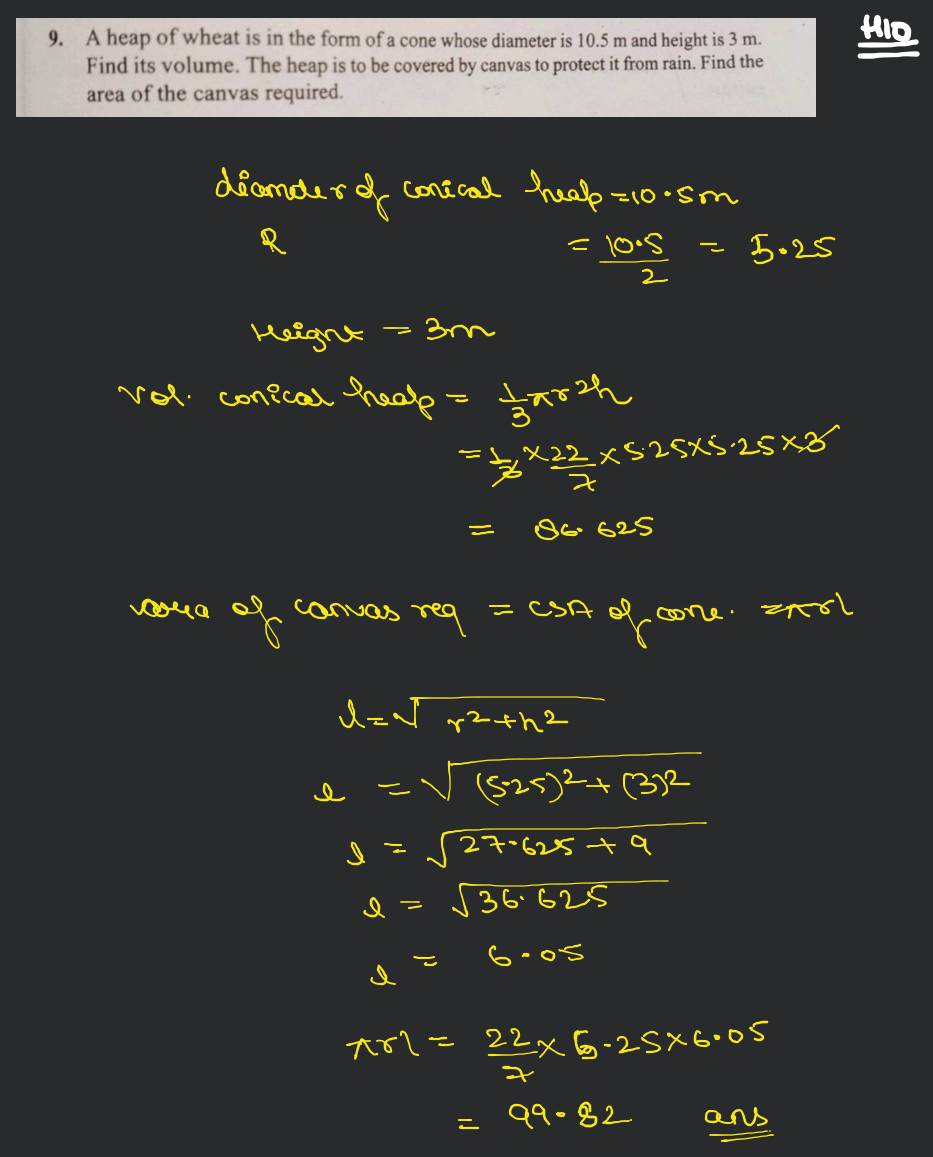 H10
9. A heap of wheat is in the form of a cone whose diameter is 10.5 m and height is 3 m.
Find its volume. The heap is to be covered by canvas to protect it from rain. Find the
area of the canvas required.
diameter of conical heap = 10.5m
R = 10.5/2 = 5.25
Height = 3m
Vol. conical heap = 1/3 πr2h
= 1/3 × 22/7 × 5.25×5.25×3
= 86.625
area of canvas req = CSA of cone. = πrl
l = √r2+h2
l = √(5.25)2 + (3)2
l = √27.625 + 9
l = √36.625
l = 6.05
πrl = 22/7 × 5.25×6.05
= 99.82 ans